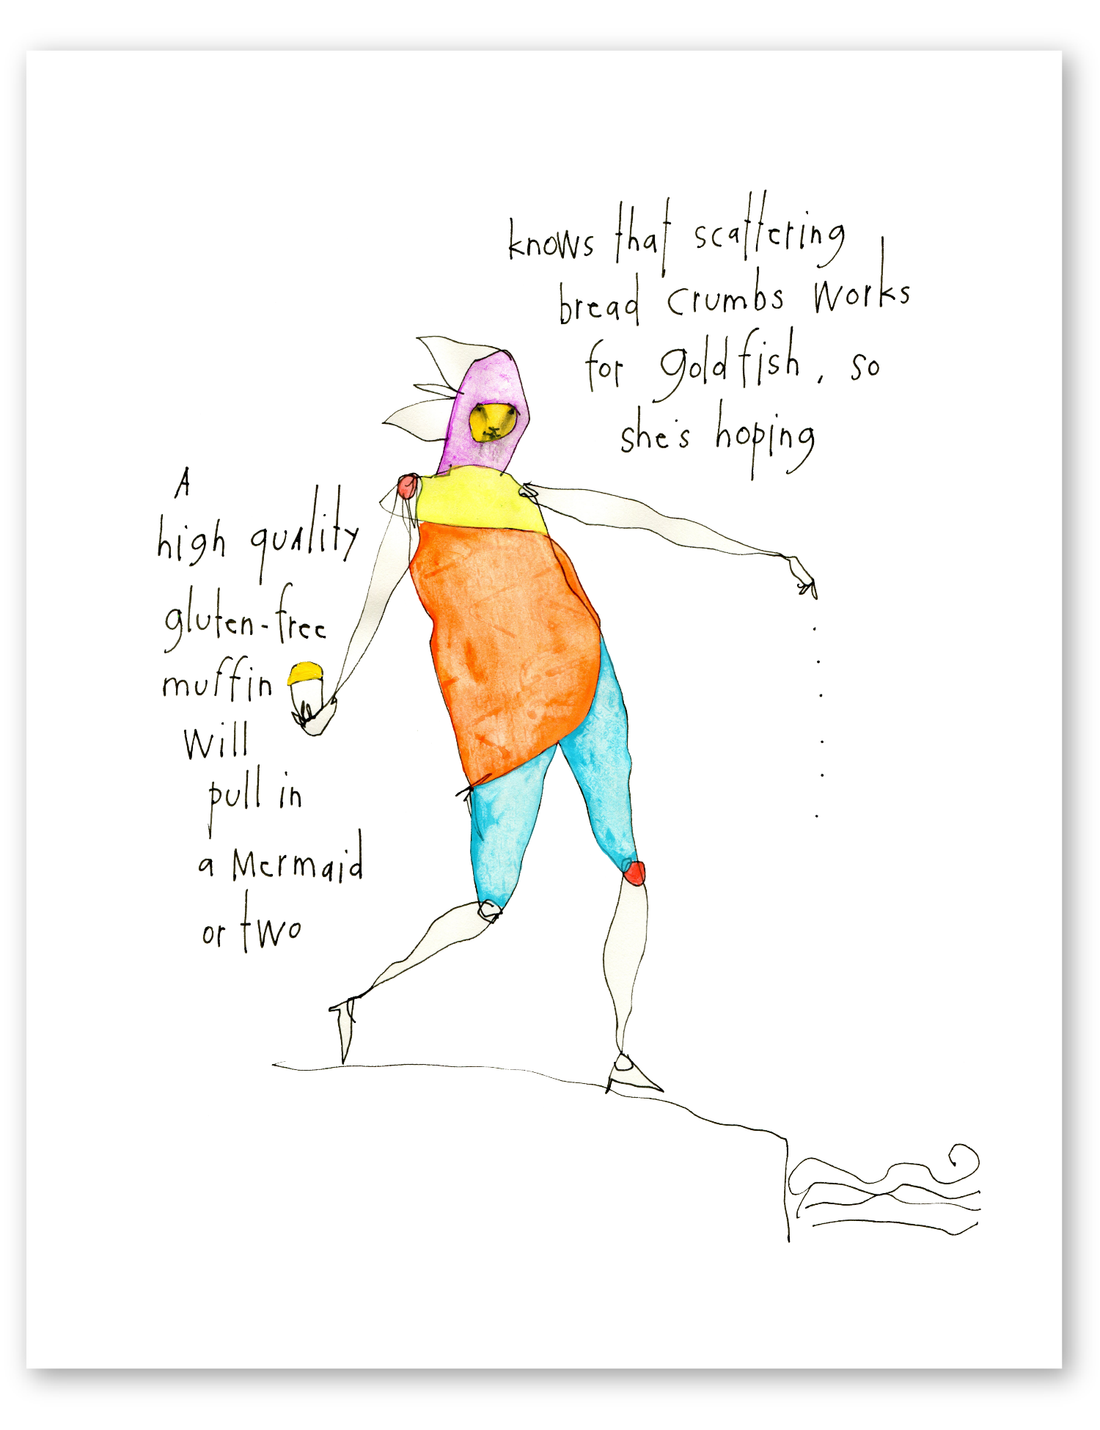 knows that scattering
bread crumbs works
for goldfish, so
she's hoping
A
high quality
gluten-free
muffin
will
pull in
a Mermaid
or two